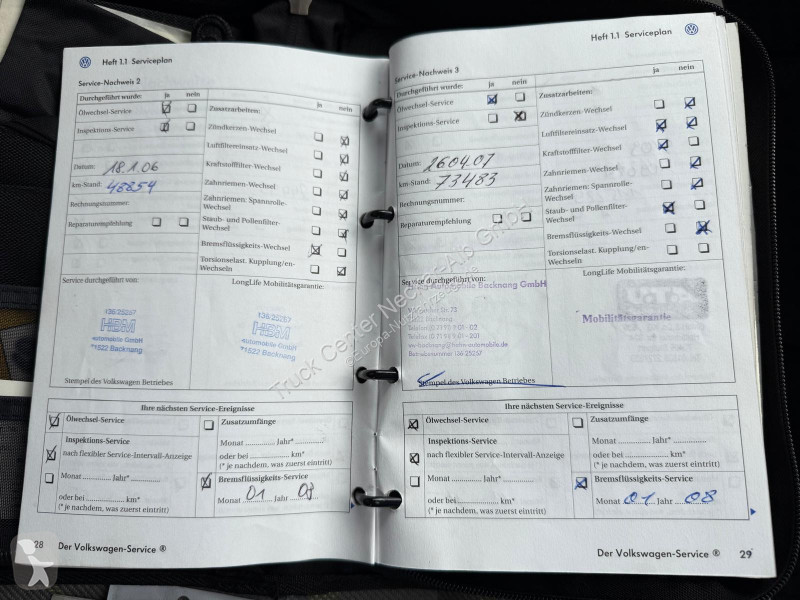 Heft 1.1 Serviceplan
Service-Nachweis 2
Durchgeführt wurde: ja nein
Ölwechsel-Service
Inspektions-Service
Datum: 18.1.06
km-Stand: 48854
Rechnungsnummer:
Reparaturempfehlung
Zusatzarbeiten: ja nein
Zündkerzen-Wechsel
Luftfiltereinsatz-Wechsel
Kraftstofffilter-Wechsel
Zahnriemen-Wechsel
Zahnriemen: Spannrolle-
Wechsel
Staub- und Pollenfilter-
Wechsel
Bremsflüssigkeits-Wechsel
Torsionselast. Kupplung/en-
Wechseln
Service durchgeführt von:
136/25257
HBM
automobile GmbH
*1522 Backnang
Stempel des Volkswagen Betriebes
LongLife Mobilitätsgarantie:
136/25257
HBM
automobile GmbH
*1522 Backnang
Ihre nächsten Service-Ereignisse
Ölwechsel-Service
Inspektions-Service
nach flexibler Service-Intervall-Anzeige
Monat ............ Jahr* ............
oder bei ............ km*
(* je nachdem, was zuerst eintritt)
Zusatzumfänge
Monat ............ Jahr* ............
oder bei ............ km*
(* je nachdem, was zuerst eintritt)
Bremsflüssigkeits-Service
Monat 01 Jahr 08
28 Der Volkswagen-Service ®
Heft 1.1 Serviceplan
Service-Nachweis 3
Durchgeführt wurde: ja nein
Ölwechsel-Service
Inspektions-Service
Datum: 26.04.07
km-Stand: 73483
Rechnungsnummer:
Reparaturempfehlung
Zusatzarbeiten: ja nein
Zündkerzen-Wechsel
Luftfiltereinsatz-Wechsel
Kraftstofffilter-Wechsel
Zahnriemen-Wechsel
Zahnriemen: Spannrolle-
Wechsel
Staub- und Pollenfilter-
Wechsel
Bremsflüssigkeits-Wechsel
Torsionselast. Kupplung/en-
Wechseln
Service durchgeführt von:
Automobile Backnang GmbH
Str. 73
Backnang
Telefon
Telefax
Betriebsnummer 136 25257
Stempel des Volkswagen Betriebes
LongLife Mobilitätsgarantie:
Mobilitätsgarantie
Ihre nächsten Service-Ereignisse
Ölwechsel-Service
Inspektions-Service
nach flexibler Service-Intervall-Anzeige
Monat ............ Jahr* ............
oder bei ............ km*
(* je nachdem, was zuerst eintritt)
Zusatzumfänge
Monat ............ Jahr* ............
oder bei ............ km*
(* je nachdem, was zuerst eintritt)
Bremsflüssigkeits-Service
Monat 01 Jahr 08
Der Volkswagen-Service ® 29
Truck Center Neckar-Alb GmbH
Europa-Nutzfahrzeuge